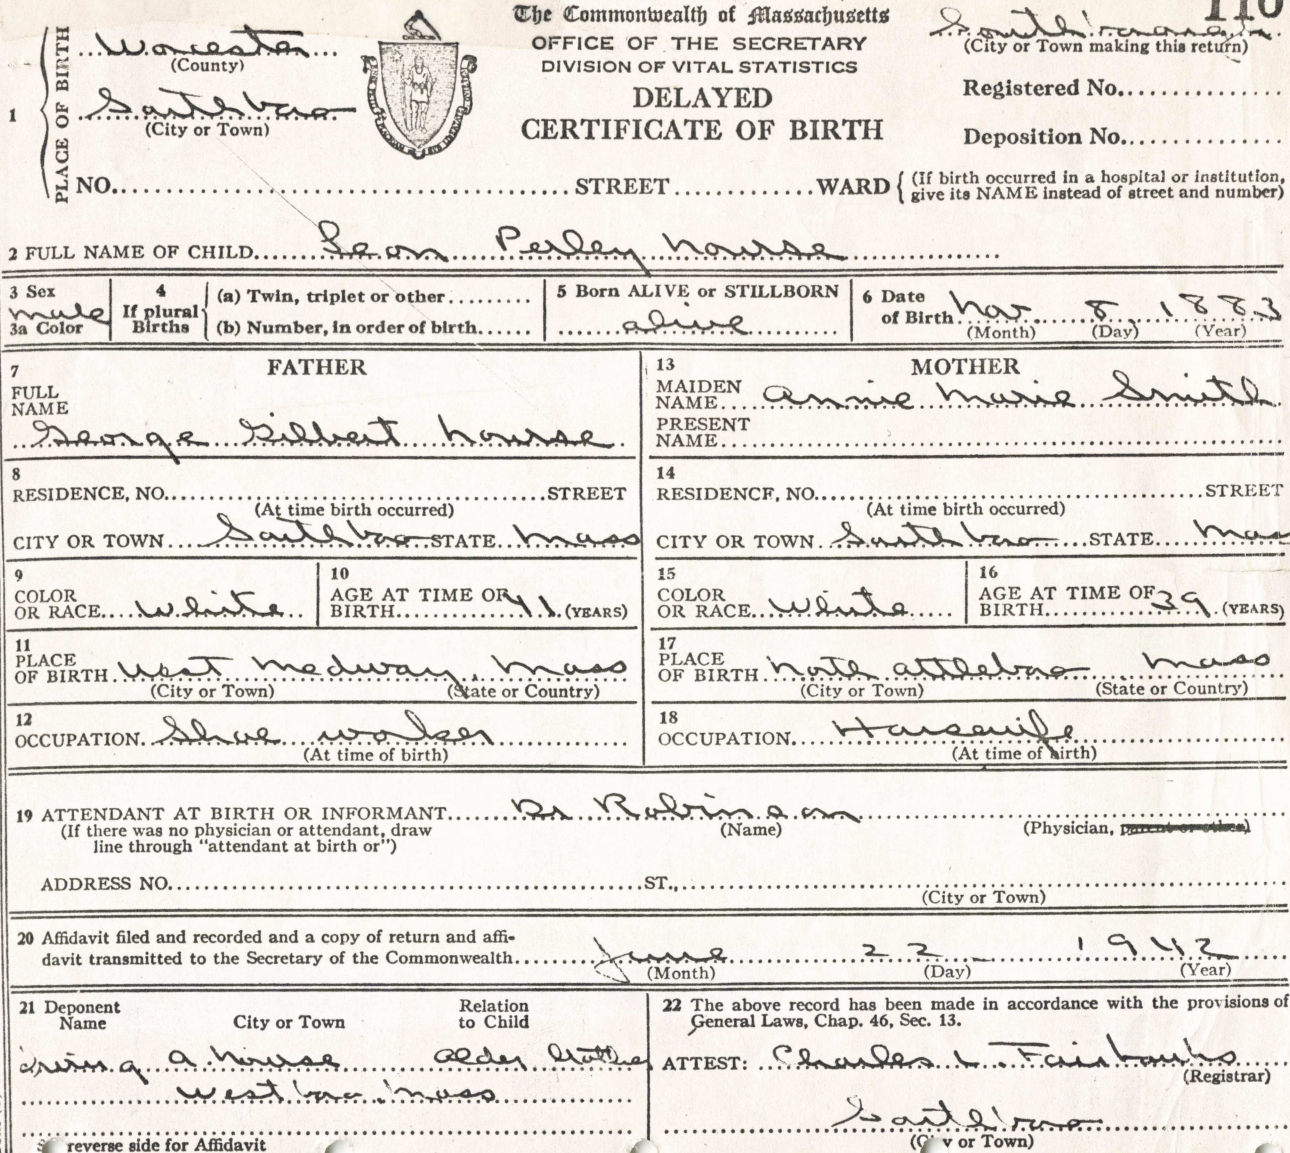 The Commonwealth of Massachusetts
OFFICE OF THE SECRETARY
DIVISION OF VITAL STATISTICS
DELAYED
CERTIFICATE OF BIRTH
110
(City or Town making this return)
Registered No.
Deposition No.
1 PLACE OF BIRTH
Worcester
(County)
Southboro
(City or Town)
NO. STREET WARD (If birth occurred in a hospital or institution, give its NAME instead of street and number)
2 FULL NAME OF CHILD Leon Perley Howse
3 Sex male
3a Color
4 If plural Births
(a) Twin, triplet or other
(b) Number, in order of birth
5 Born ALIVE or STILLBORN
alive
6 Date of Birth Nov. 8, 1883
(Month) (Day) (Year)
FATHER
7 FULL NAME
George Gilbert Howse
8
RESIDENCE, NO. STREET
(At time birth occurred)
CITY OR TOWN Southboro STATE Mass
9 COLOR OR RACE White
10 AGE AT TIME OF BIRTH 41 (YEARS)
11 PLACE OF BIRTH West Medway, Mass
(City or Town) (State or Country)
12 OCCUPATION Shoe worker
(At time of birth)
MOTHER
13 MAIDEN NAME Annie Marie Smith
PRESENT NAME
14
RESIDENCE, NO. STREET
(At time birth occurred)
CITY OR TOWN Southboro STATE Mass
15 COLOR OR RACE White
16 AGE AT TIME OF BIRTH 39 (YEARS)
17 PLACE OF BIRTH North Attleboro Mass
(City or Town) (State or Country)
18 OCCUPATION Housewife
(At time of birth)
19 ATTENDANT AT BIRTH OR INFORMANT Dr Robinson
(If there was no physician or attendant, draw line through "attendant at birth or") (Name) (Physician, parent or other)
ADDRESS NO. ST.,
(City or Town)
20 Affidavit filed and recorded and a copy of return and affi-
davit transmitted to the Secretary of the Commonwealth June 22 1942
(Month) (Day) (Year)
21 Deponent Name City or Town Relation to Child
Irving A. Howse Older Brother
Westboro, Mass
reverse side for Affidavit
22 The above record has been made in accordance with the provisions of
General Laws, Chap. 46, Sec. 13.
ATTEST: Charles L. Fairbanks
(Registrar)
Southboro
(City or Town)